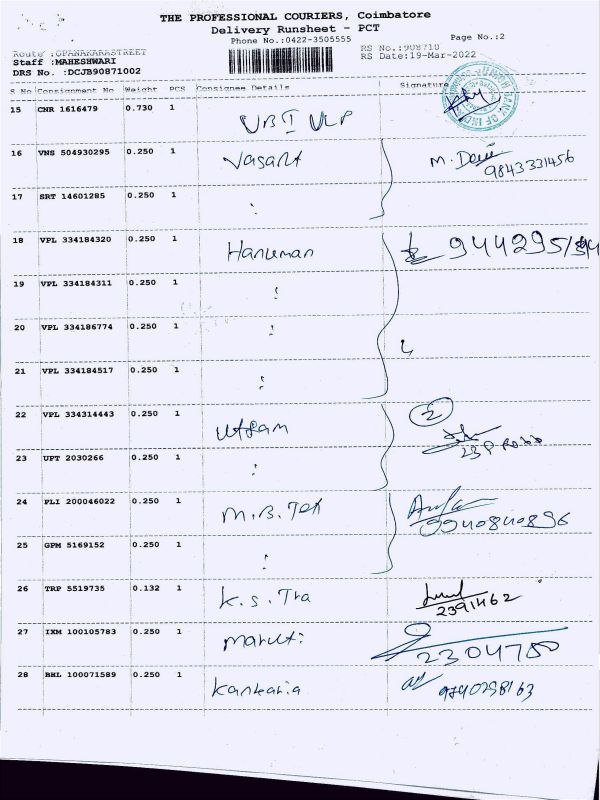 THE PROFESSIONAL COURIERS, Coimbatore
Delivery Runsheet - PCT
Phone No.:0422-3505555
Page No.:2
Route :OPANAKARASTREET
Staff :MAHESHWARI
DRS No. :DCJB90871002
RS No.:908710
RS Date:19-Mar-2022
S No Consignment No Weight PCS Consignee Details Signature
15 CNR 1616479 0.730 1 UBI ULP
16 VNS 504930295 0.250 1 Vasant M. Devi
9843331456
17 SRT 14601285 0.250 1 :
18 VPL 334184320 0.250 1 Hanuman 944295
19 VPL 334184311 0.250 1 :
20 VPL 334186774 0.250 1 :
21 VPL 334184517 0.250 1 :
22 VPL 334314443 0.250 1 Uttam 2
23 UPT 2030266 0.250 1 :
24 PLI 200046022 0.250 1 M.B.Tex
9940840896
25 GPM 5169152 0.250 1 :
26 TRP 5519735 0.132 1 K.S.Tra
2391462
27 IXM 100105783 0.250 1 Maruti
2304780
28 BHL 100071589 0.250 1 Kankaria 9840298163